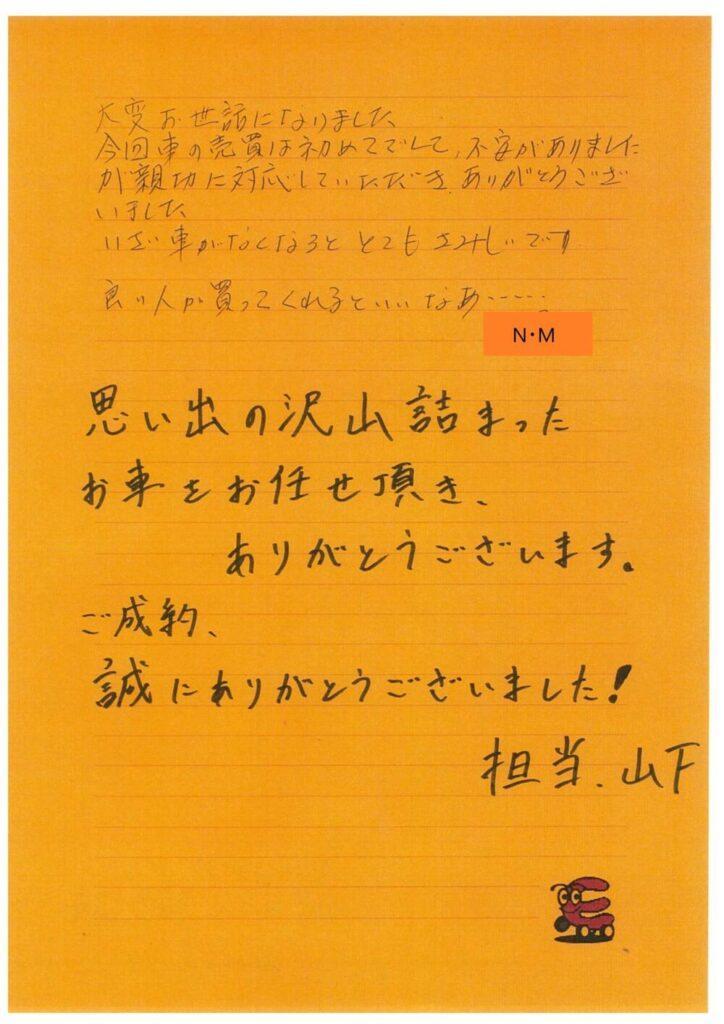 大変お世話になりました
今回車の売買は初めてでして、不安がありました
が親切に対応していただき、ありがとうござ
いました
いざ車がなくなると とても さみしいです
良い人が買ってくれるといいなあ……。
N・M
思い出の沢山詰まった
お車をお任せ頂き、
ありがとうございます。
ご成約、
誠にありがとうございました!
担当、山下